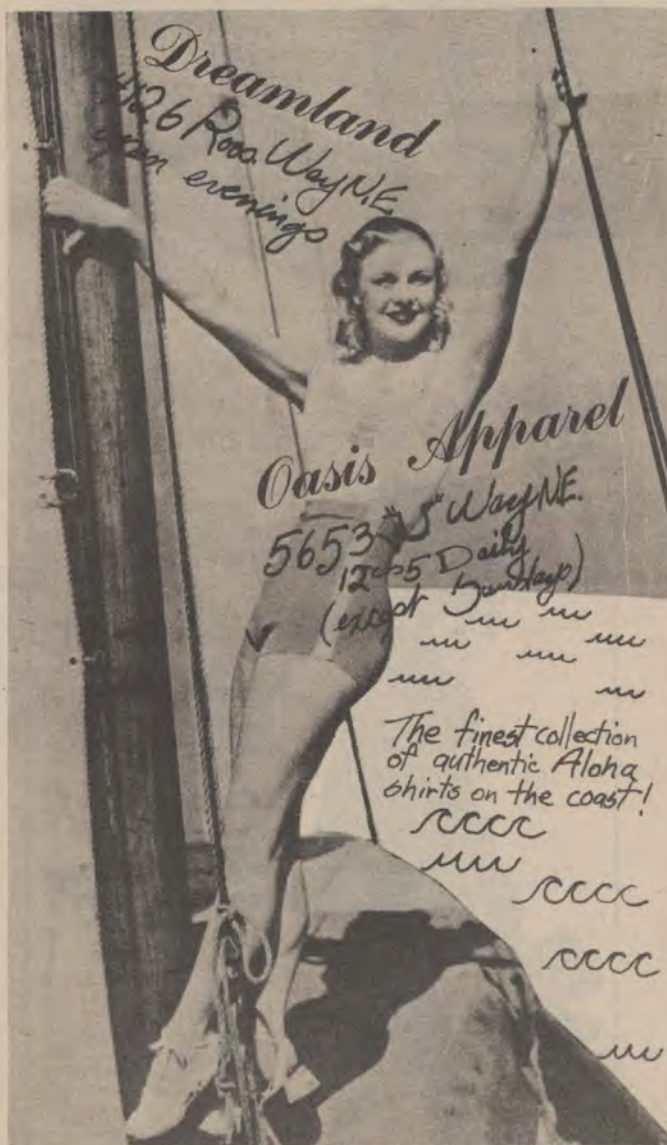 Dreamland
4126 Roos. Way N.E.
open evenings
Oasis Apparel
5653 "U" Way N.E.
12 to 5 Daily
(except Sundays)
The finest collection
of authentic Aloha
shirts on the coast!